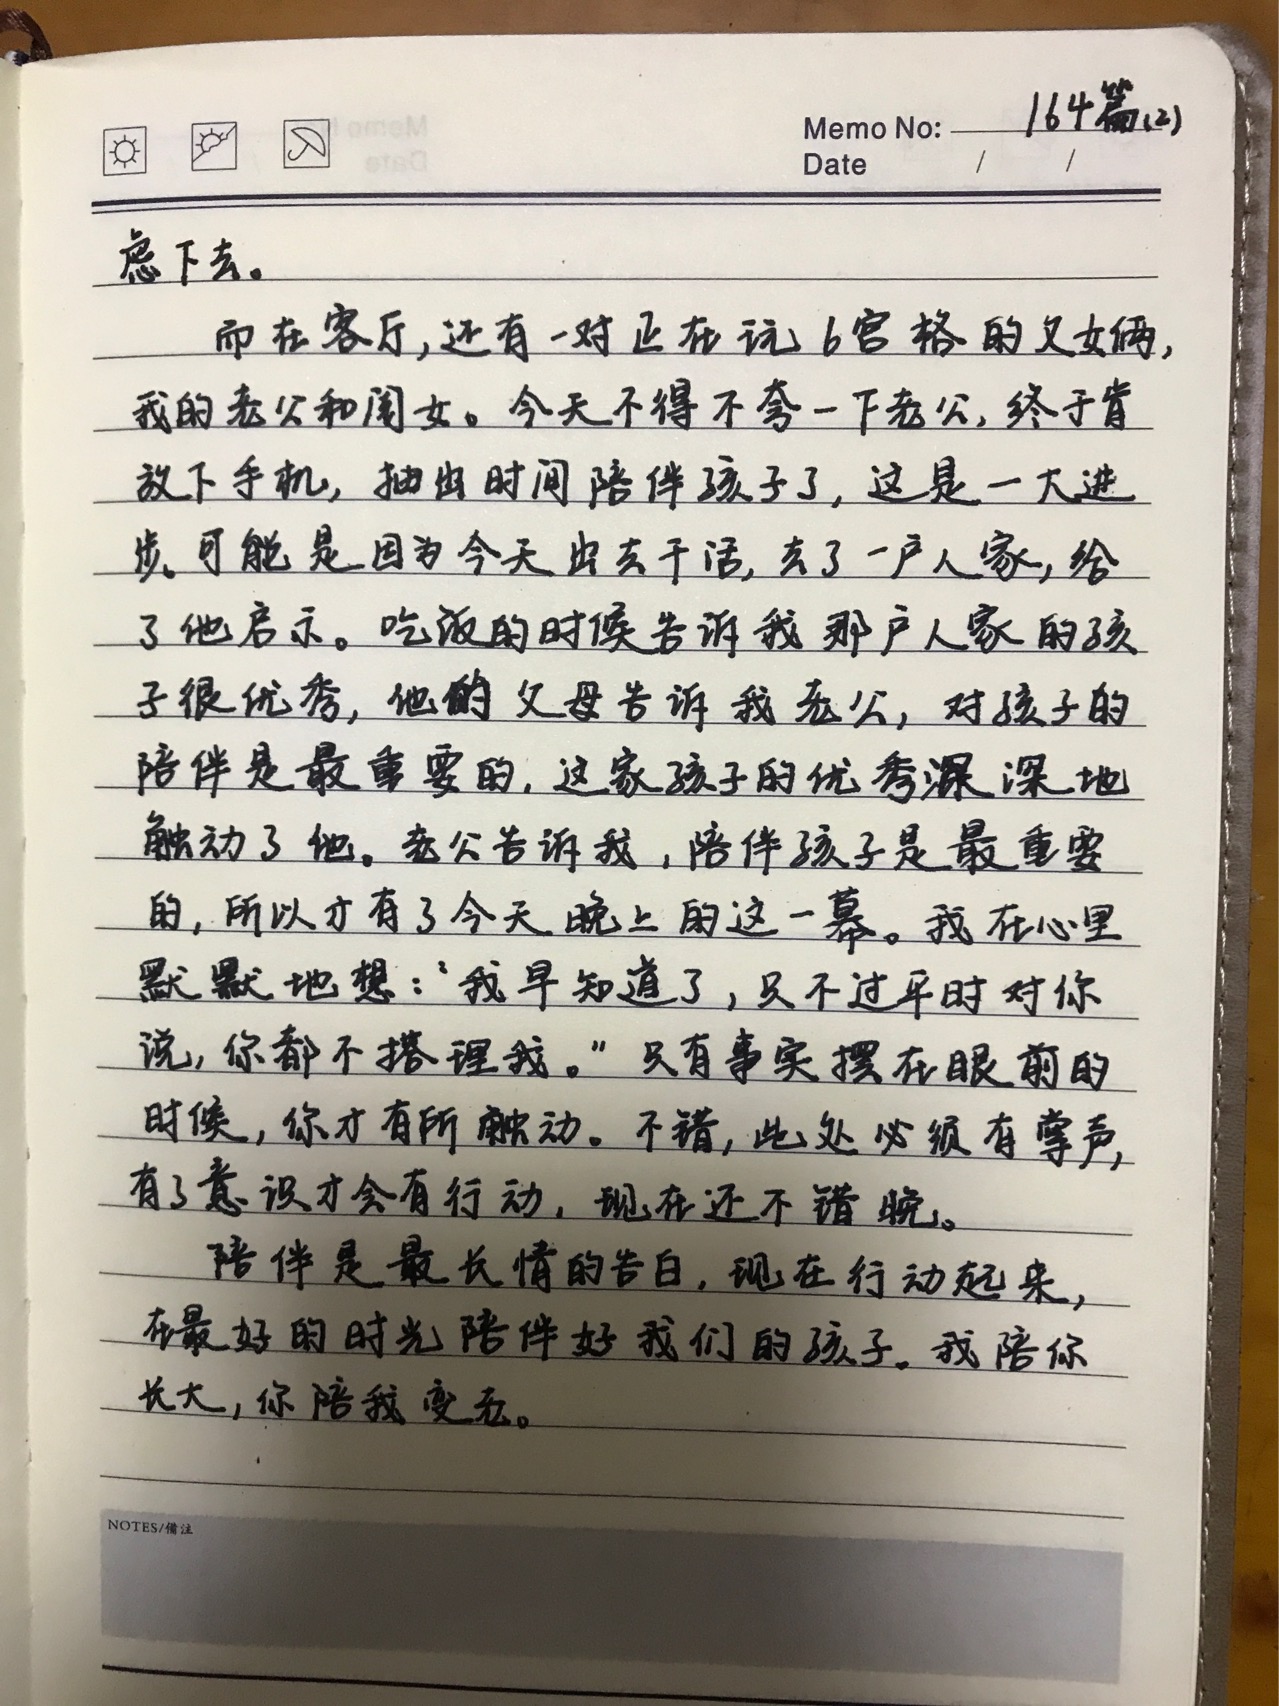 164篇(2)
Memo No:
Date / /
虑下去。
而在客厅,还有一对正在玩6宫格的父女俩,
我的老公和闺女。今天不得不夸一下老公,终于肯
放下手机,抽出时间陪伴孩子了,这是一大进
步。可能是因为今天出去干活,去了一户人家,给
了他启示。吃饭的时候告诉我那户人家的孩
子很优秀,他的父母告诉我老公,对孩子的
陪伴是最重要的,这家孩子的优秀深深地
触动了他。老公告诉我,陪伴孩子是最重要
的,所以才有了今天晚上的这一幕。我在心里
默默地想:“我早知道了,只不过平时对你
说,你都不搭理我。”只有事实摆在眼前的
时候,你才有所触动。不错,此处必须有掌声,
有了意识才会有行动,现在还不错晚。
陪伴是最长情的告白,现在行动起来,
在最好的时光陪伴好我们的孩子。我陪你
长大,你陪我变老。
NOTES/備注